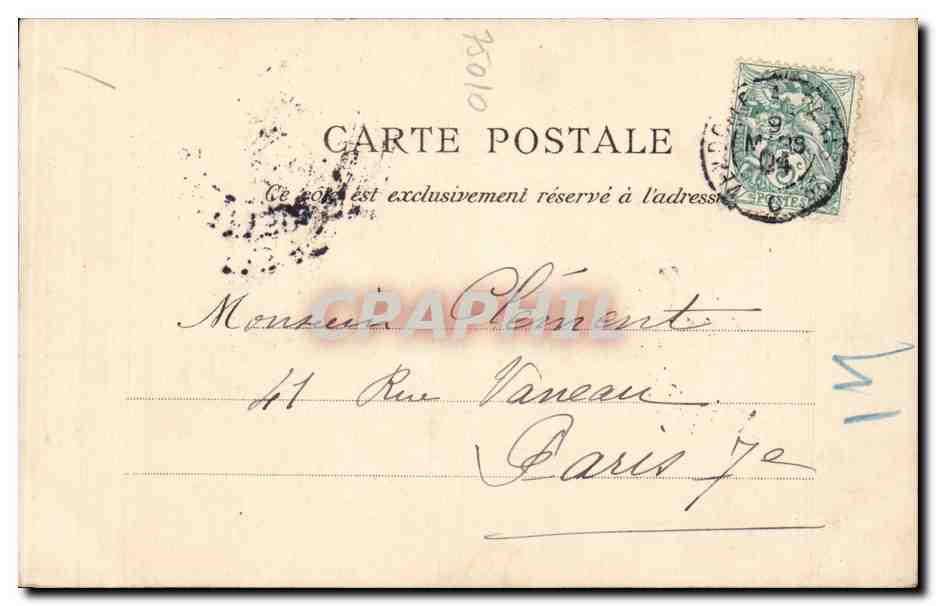 01052
CARTE POSTALE
Ce côté est exclusivement réservé à l'adresse
9
MARS
04
5
POSTES
CPAPHIL
Monsieur Clément
41 Rue Vaneau
Paris 7e